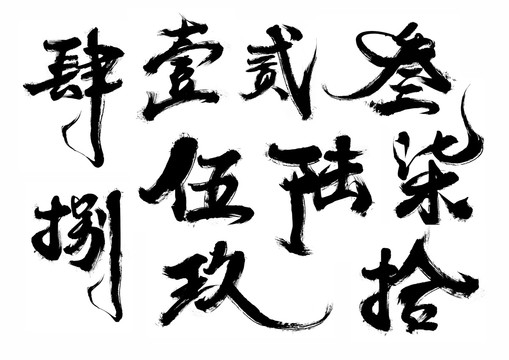 肆壹贰叁
捌伍陆柒
玖拾